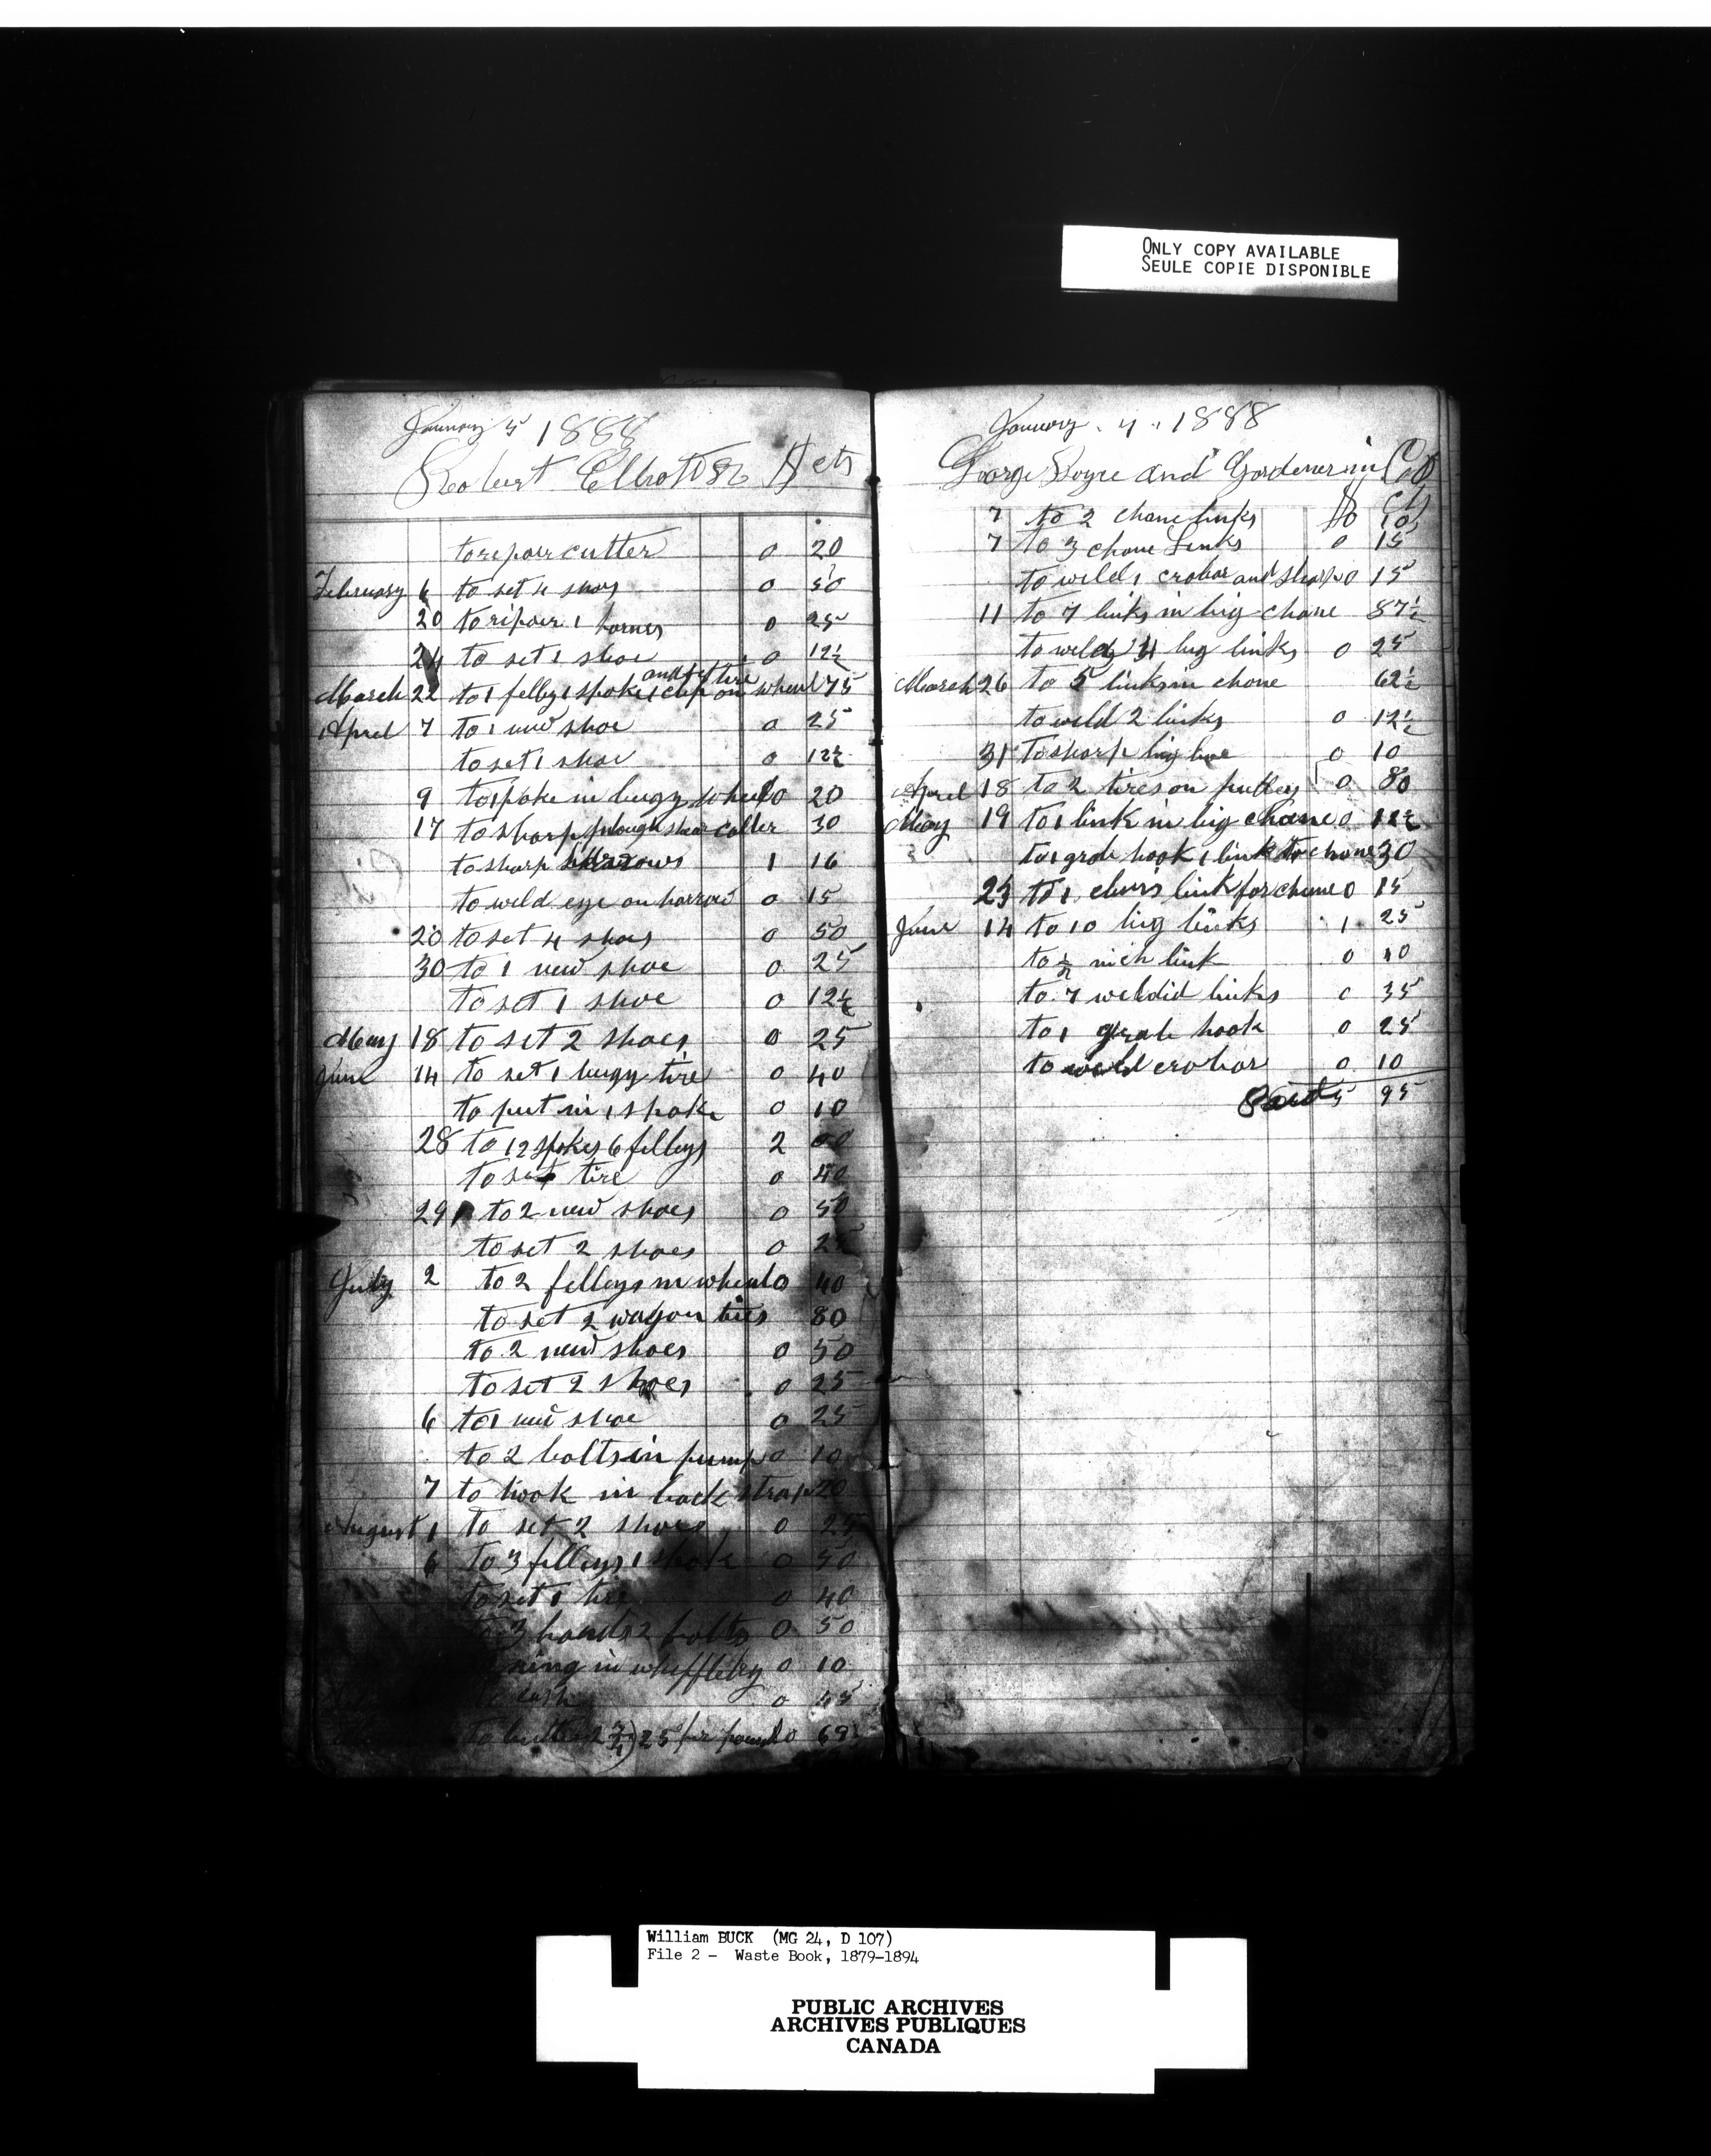 ONLY COPY AVAILABLE
SEULE COPIE DISPONIBLE
January 5 1888
Robert Elliott Dr $ cts
to repair cutter 0 20
February 6 to set 4 shoes 0 50
20 to ripair 1 harnes 0 25
24 to set 1 shoe 0 12½
and set tire
March 22 to 1 felley 1 spoke 1 clip on wheel 75
Aprel 7 to 1 new shoe 0 25
to set 1 shoe 0 12½
9 to 1 spoke in bugy wheel 0 20
17 to sharp plough shear 30
to sharp harrows 1 16
to weld eye on harrow 0 15
20 to set 4 shoes 0 50
30 to 1 new shoe 0 25
to set 1 shoe 0 12½
May 18 to set 2 shoes 0 25
June 14 to set 1 bugy tire 0 40
to put in 1 spoke 0 10
28 to 12 spokes 6 felleys 2 00
to set tire 0 40
29 to 2 new shoes 0 50
to set 2 shoes 0 25
July 2 to 2 felleys in wheel 0 40
to set 2 wagon ties 80
to 2 new shoes 0 50
to set 2 shoes 0 25
6 to 1 new shoe 0 25
to 2 bolts in pump 0 10
7 to hook in back strap 20
August 1 to set 2 shoes 0 25
6 to 3 felleys 1 spoke 0 50
to set 1 tire 0 40
to 3 bands 2 bolts 0 50
ring in whiffletry 0 10
to cash 0 45
to butter 2¾ 25 per pound 0 68
January 4 1888
George Doyre and Gardener in Co Dr
7 to 2 chane links $0 cts 10
7 to 3 chane Links 0 15
to weld 1 crobar and sharp 0 15
11 to 7 links in big chane 87½
to weld 4 big links 0 25
March 26 to 5 links in chane 62½
to weld 2 links 0 12½
31 to sharp big hoe 0 10
Aprel 18 to 2 tires on pulleys 0 80
May 19 to 1 link in big chane 0 12½
to 1 grab hook 1 link to chane 30
23 to 1 clevis link for chane 0 15
June 14 to 10 big links 1 25
to ½ inch link 0 10
to 7 weldid links 0 35
to 1 grab hook 0 25
to weld crobar 0 10
Paid 5 95
William BUCK (MG 24, D 107)
File 2 - Waste Book, 1879-1894
PUBLIC ARCHIVES
ARCHIVES PUBLIQUES
CANADA